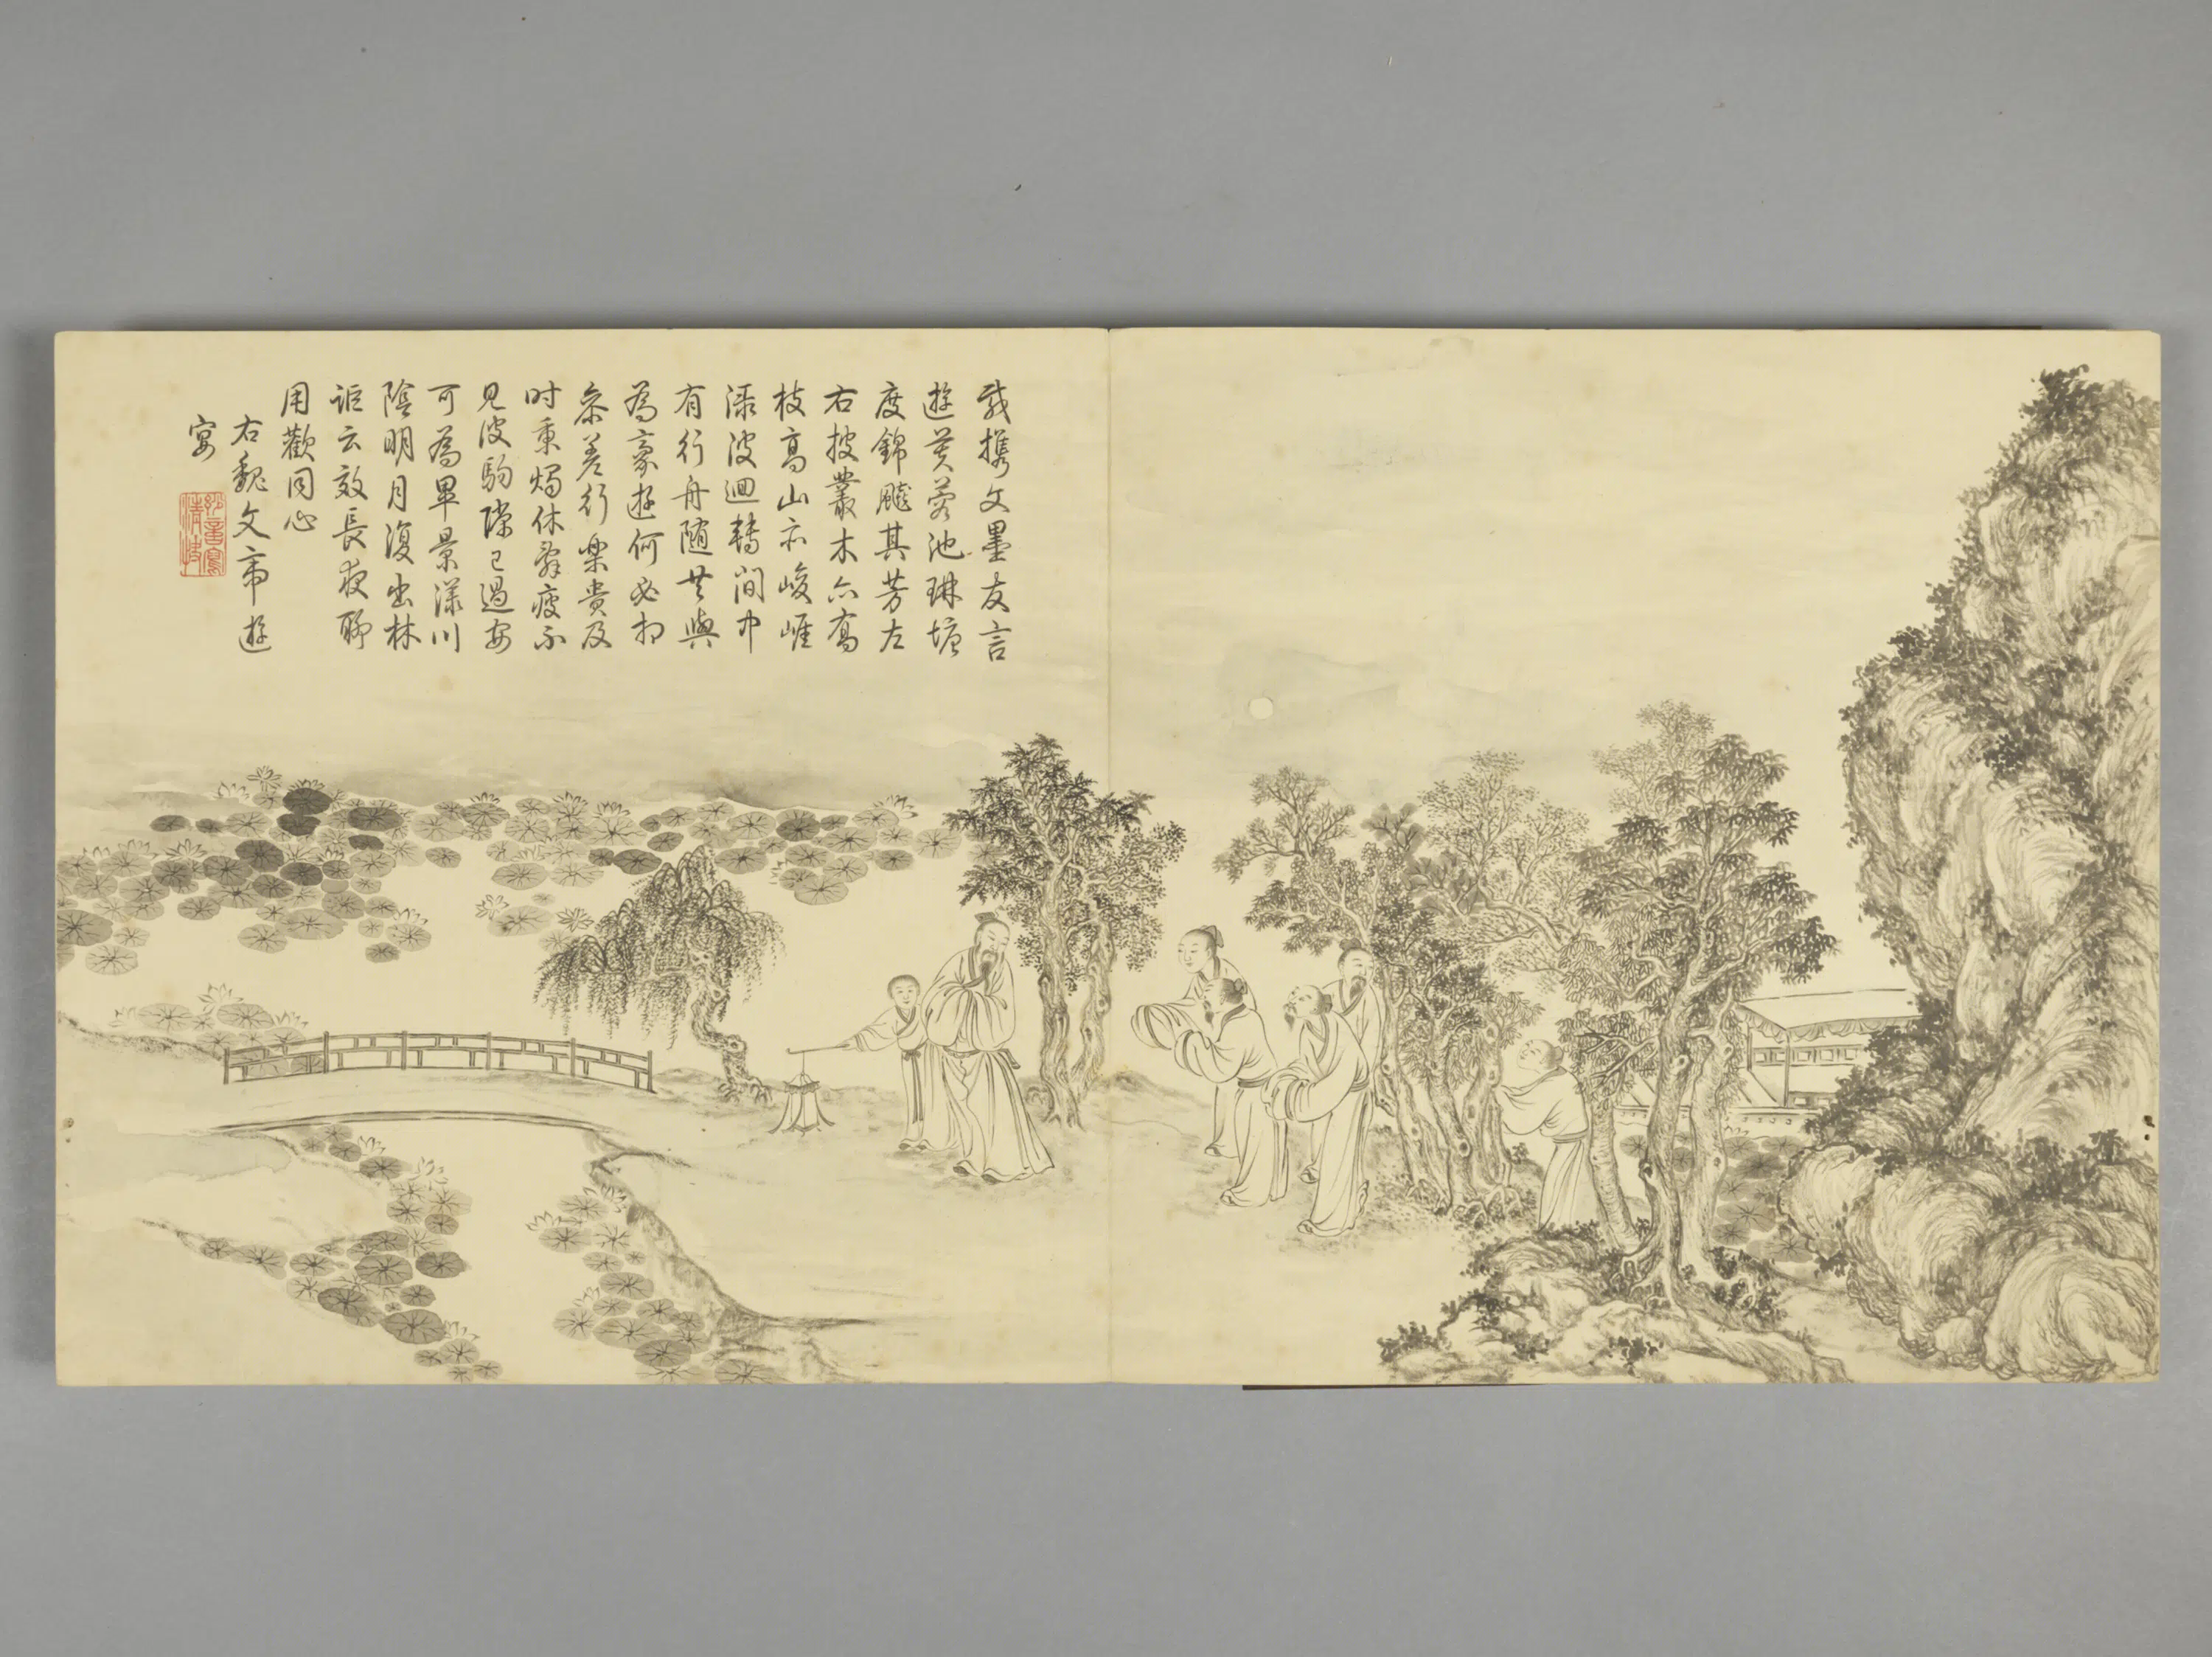 載攜文墨友言
遊芙蓉池琳塘
度錦飈其芳左
右披叢木亦喬
枝高山亦峻崖
淥波迴轉間中
有行舟随共與
為豪遊何必相
參差行樂貴及
时秉燭休辭疲不
見波駒隙已過安
可為畢景漾川
陰明月復出林
詎云效長夜聊
用歡同心
右魏文帝遊
宴